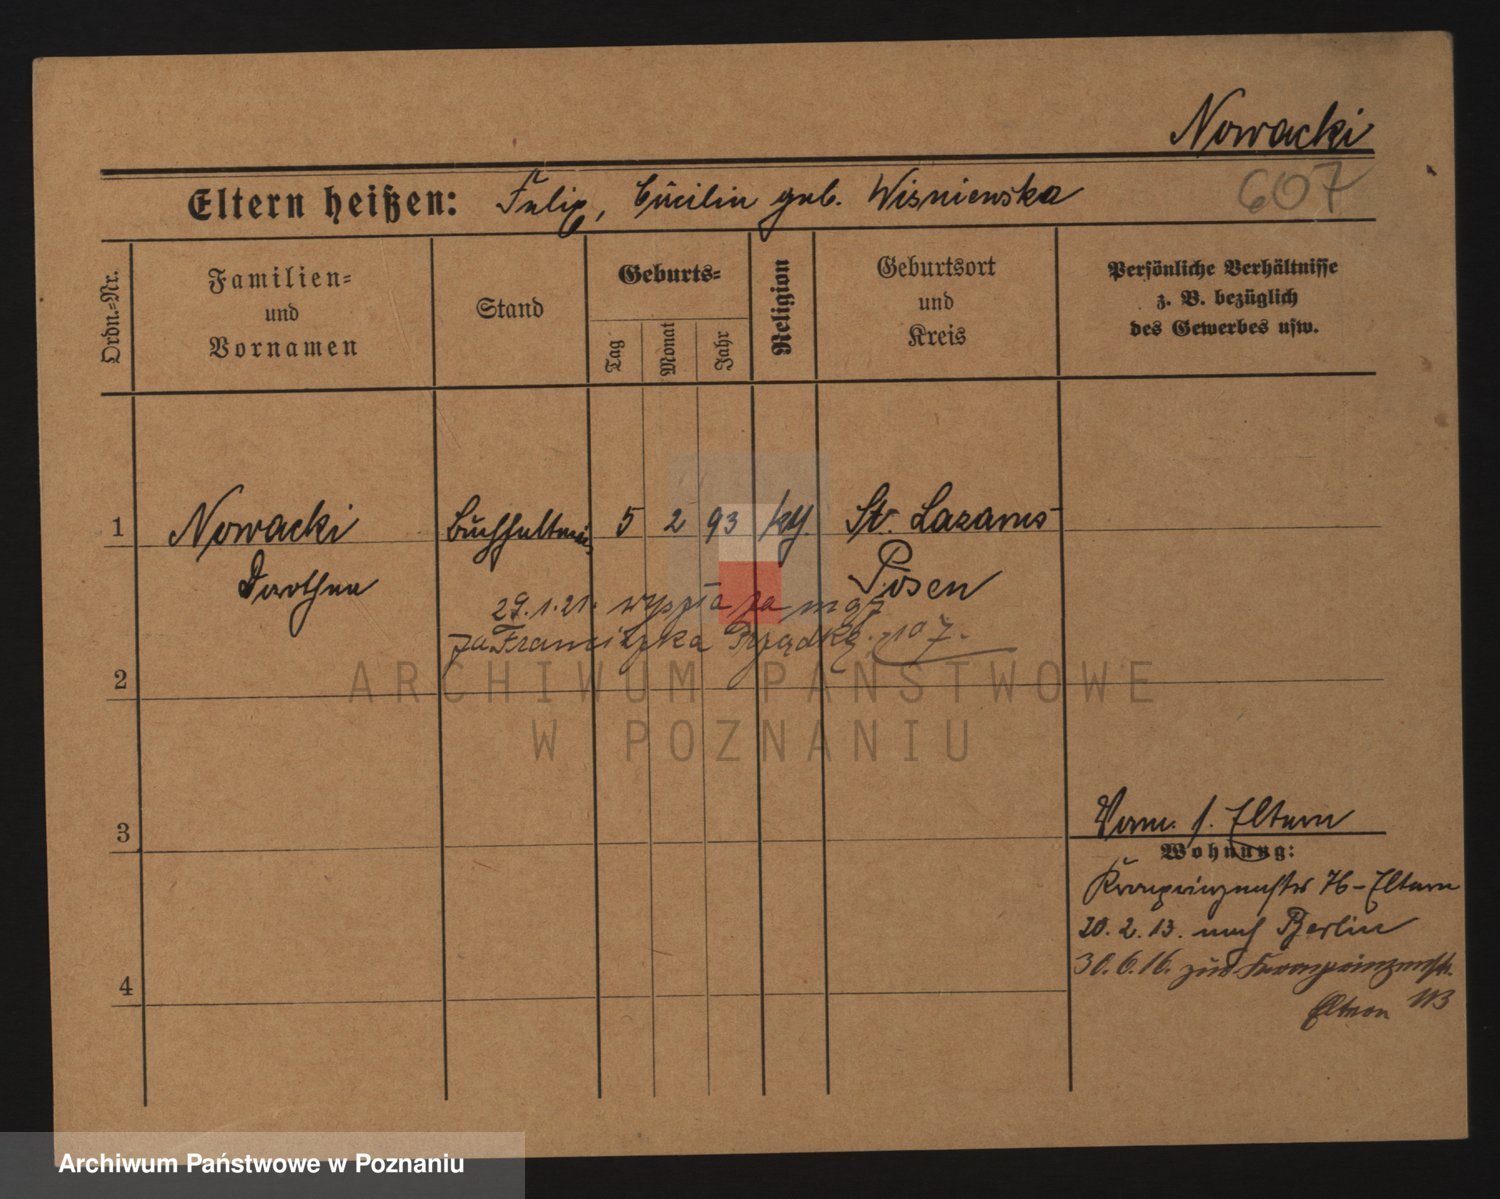 Nowacki
607
Eltern heißen: Felix, Cäcilie geb. Wisniewska
Ordn.=Nr.
Familien=
und
Vornamen
Stand
Geburts=
Tag
Monat
Jahr
Religion
Geburtsort
und
Kreis
Persönliche Verhältnisse
z. B. bezüglich
des Gewerbes usw.
1 Nowacki Buchhalterin 5 2 93 kth. St. Lazarus
Dorothea Posen
29.1.21. wyszła za mąż
za Franciszka Prządkę.
2
ARCHIWUM PAŃSTWOWE
W POZNANIU
3
Vorm. s. Eltern
Wohnung:
Kronprinzenstr 76 - Eltern
20. 2. 13. nach Berlin
30. 6. 16. zur. Kronprinzenstr.
Eltern 113
4
Archiwum Państwowe w Poznaniu